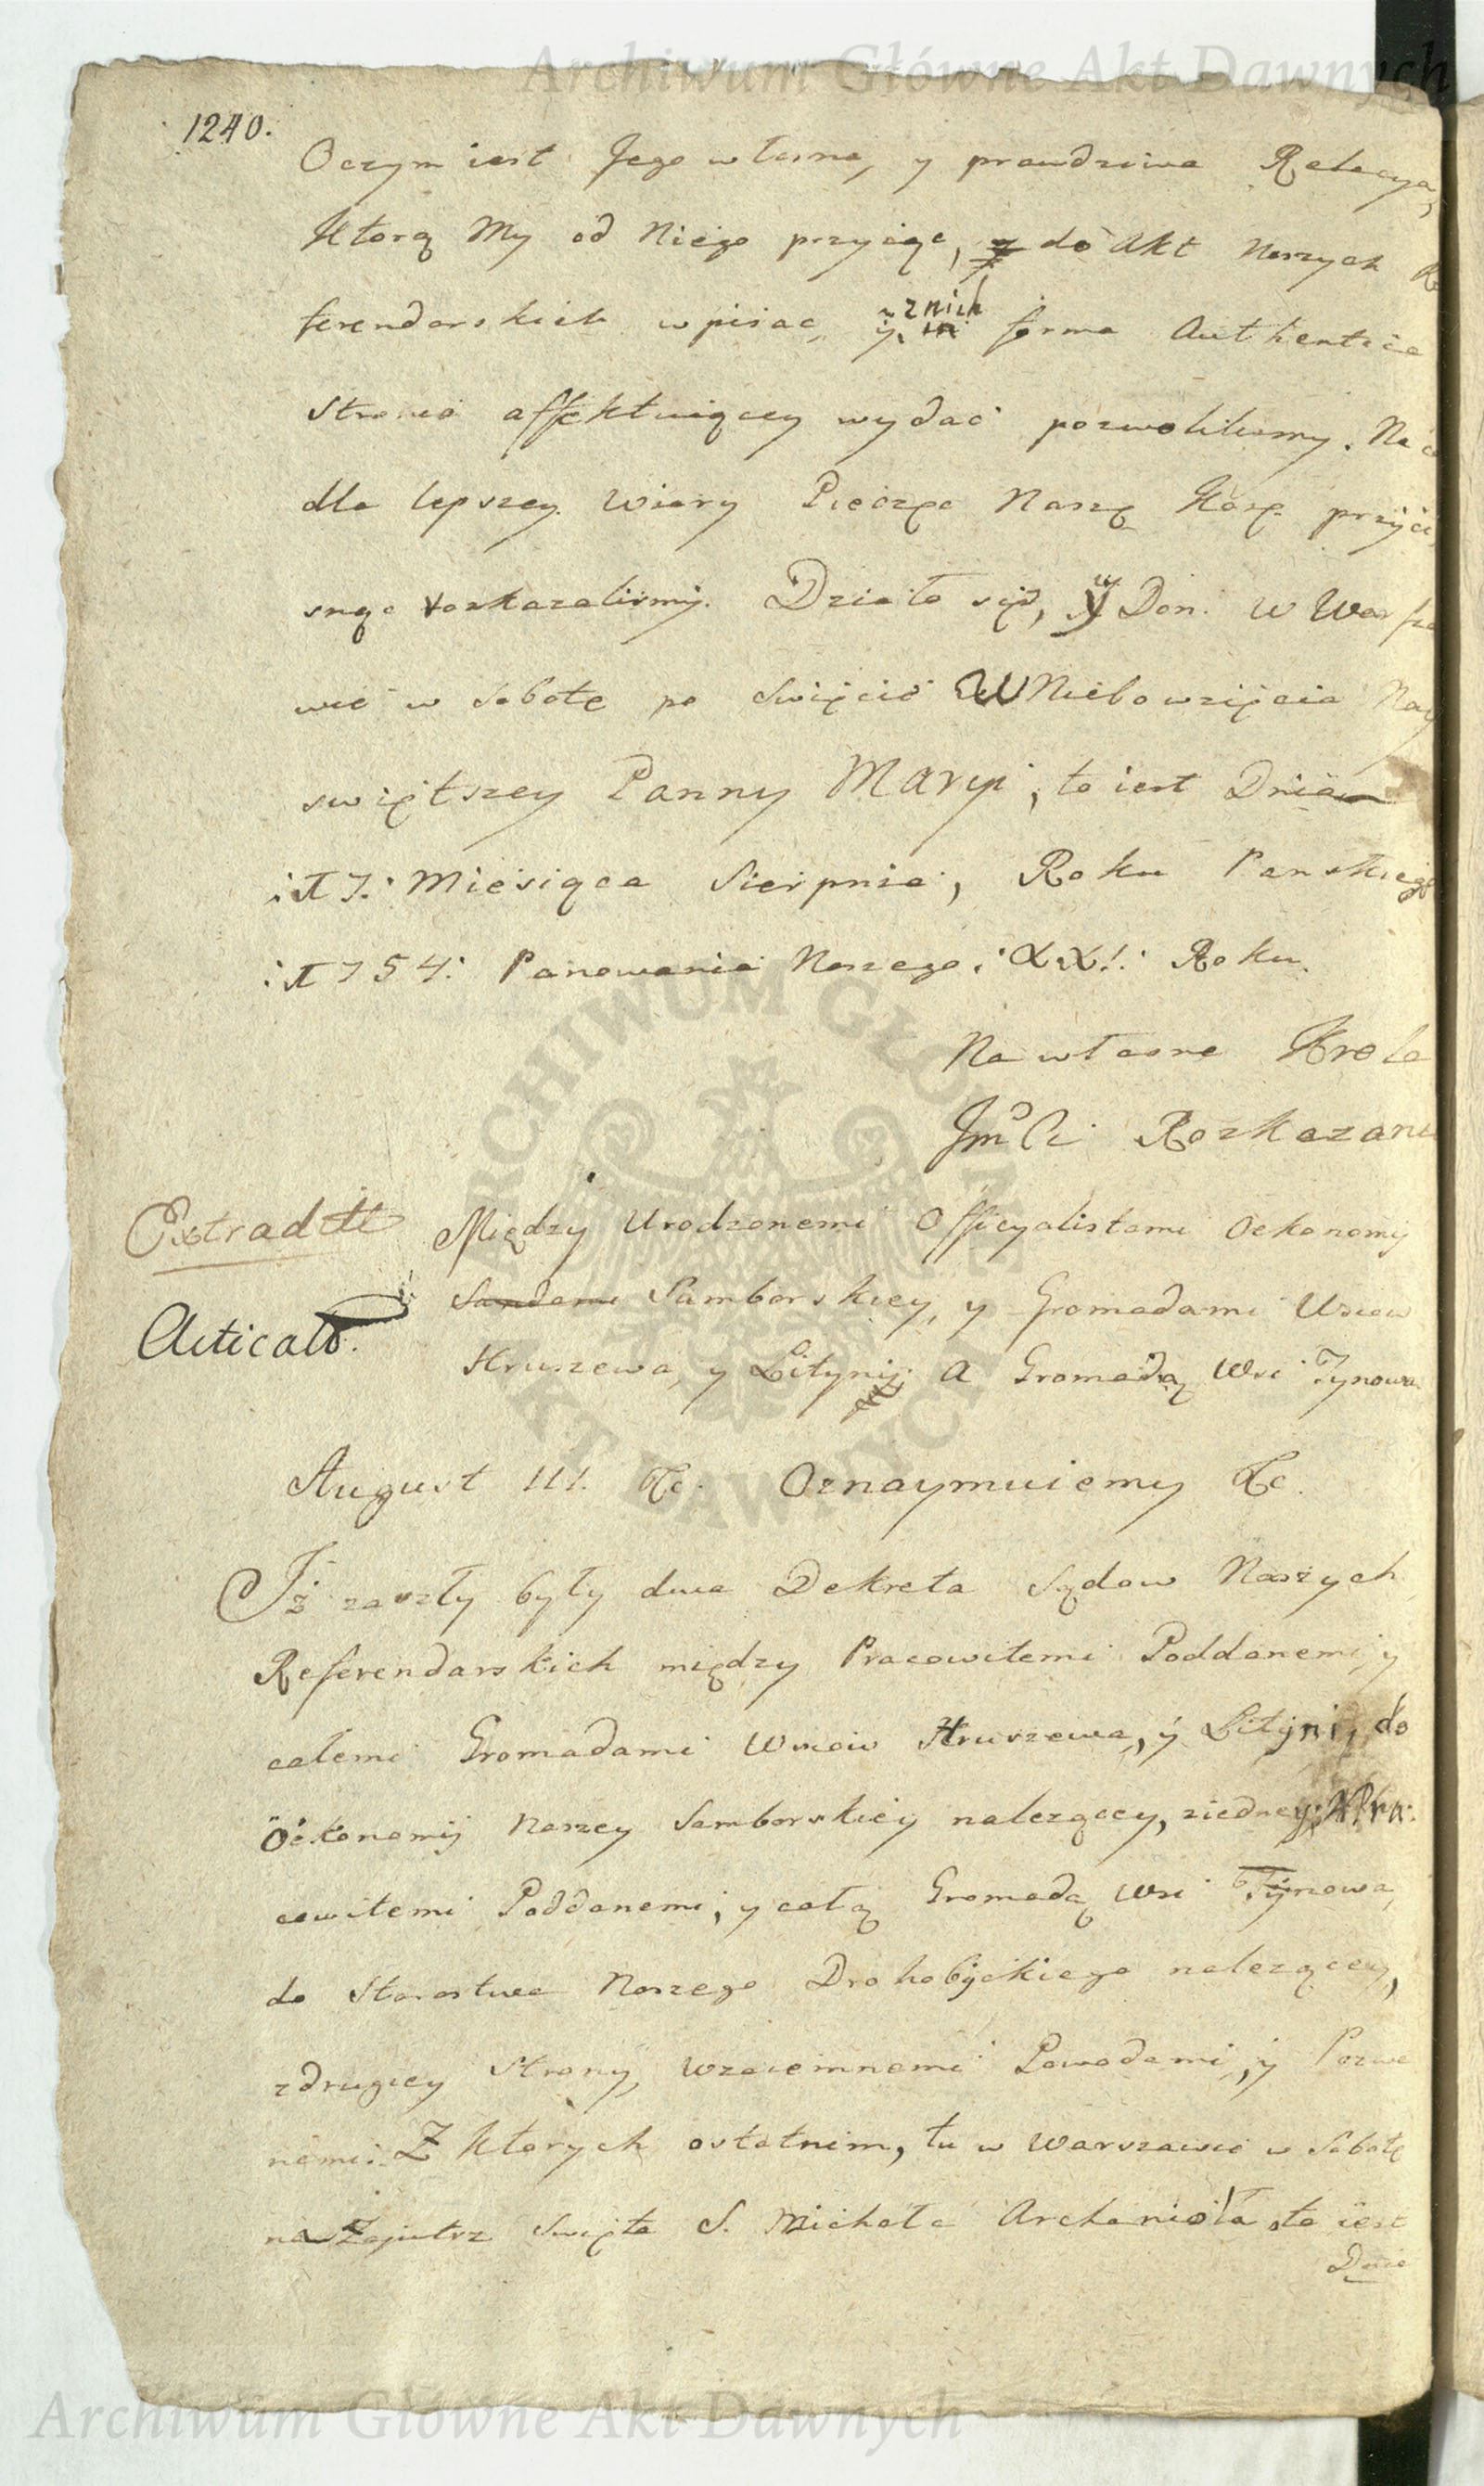 Archiwum Główne Akt Dawnych
1240.
Oczym iest Jego własna, y prawdziwa Relacya,
Ktorą My od Niego przyiąc, do Akt Naszych Re
ferendarskich wpisac, y z nich forma Authentica
Stronie affektuiącey wydać pozwolilismy. Na co
dla lepszey Wiary Pieczęc Naszą Kor. przyci
snąc roskazalismy. Działo się, y Dan. w Warsza
wie w Sobotę po Swięcie WNiebowzięcia Nay
swiętszey Panny Maryi, to iest Dnia
:17: Miesiąca Sierpnia, Roku Panskiego
:1754: Panowania Naszego :XXI: Roku.
Na własne Krola
Jmci Rozkazanie
Extradit
Między Urodzonemi Officyalistami Oekonomy
Sandomi Samborskiey, y Gromadami Wsiow
Acticato.
Hruszewa, y Lityni, A Gromadą Wsi Tynowa
August III. &c. Oznaymuiemy &c.
Iż zaszły były dwa Dekreta Sądow Naszych
Referendarskich między Pracowitemi Poddanemi, y
całemi Gromadami Wsiow Hruszewa, y Lityni, do
Oekonomij Naszey Samborskiey nalezącey, ziedney; A Pra:
cowitemi Poddanemi, y całą Gromadą Wsi Tynowa,
do Starostwa Naszego Drohobyckiego nalezącey,
zdrugiey Strony, Wzaiemnemi Powodami, y Pozwa
nemi: Z ktorych ostatnim, tu w Warszawie w Sobotę
nazajutrz Swięta S. Michała Archanioła, to iest
Dnia
ARCHIWUM GŁÓWNE AKT DAWNYCH
Archiwum Główne Akt Dawnych